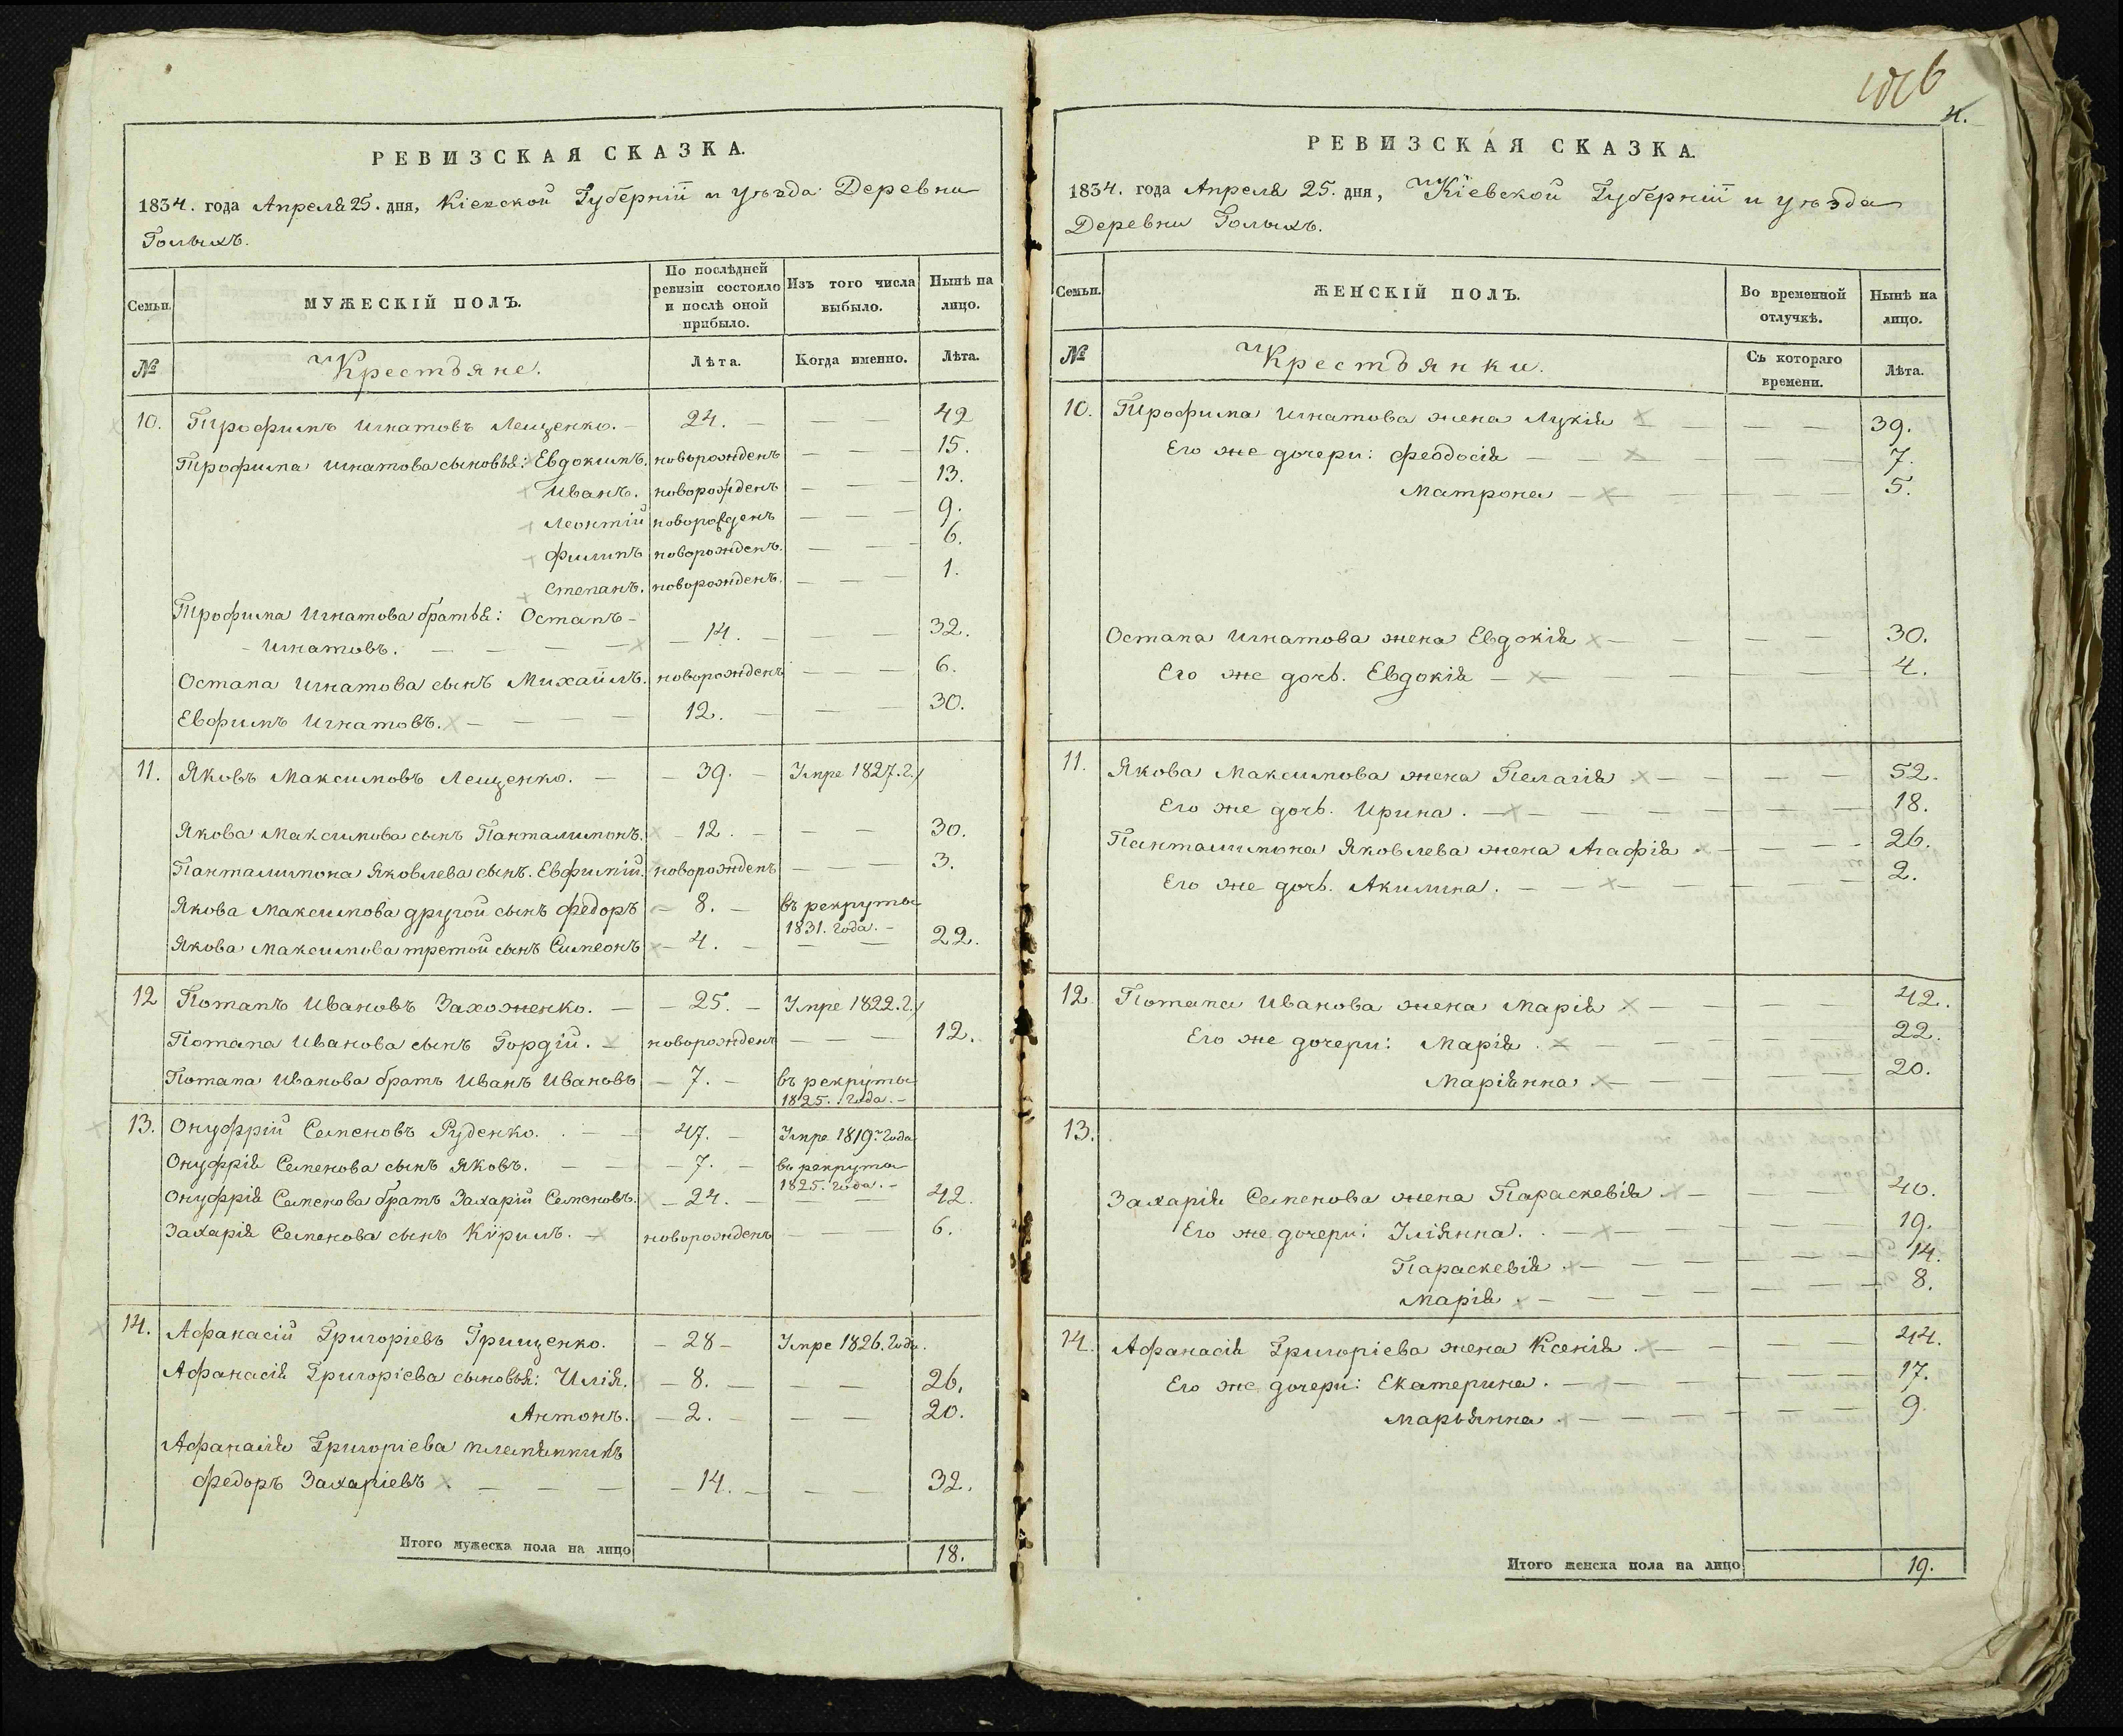 РЕВИЗСКАЯ СКАЗКА.
1834. года Апреля 25. дня, Кіевской Губерніи и уѣзда Деревни
Голыхъ.
Семьи. МУЖЕСКІЙ ПОЛЪ. По послѣдней ревизіи состояло и послѣ оной прибыло. Изъ того числа выбыло. Нынѣ на лицо.
№ Крестьяне. Лѣта. Когда именно. Лѣта.
10. Трофимъ Игнатовъ Лещенко. 24. 42
Трофима Игнатова сыновья: Евдокимъ. новорожденъ 15.
Иванъ. новорожденъ 13.
Леонтій новорожденъ 9.
Филипъ новорожденъ. 6.
Степанъ. новорожденъ. 1.
Трофима Игнатова братья: Остапъ
Игнатовъ. 14. 32.
Остапа Игнатова сынъ Михаилъ. новорожденъ 6.
Евфимъ Игнатовъ. 12. 30.
11. Яковъ Максимовъ Лещенко. 39. Умре 1827. г.
Якова Максимова сынъ Панталимонъ. 12. 30.
Панталимона Яковлева сынъ. Евфимій. новорожденъ 3.
Якова Максимова другой сынъ Федоръ 8. въ рекруты
1831. года.
Якова Максимова третой сынъ Симеонъ 4. 22.
12 Потапъ Ивановъ Захоженко. 25. Умре 1822. г.
Потапа Иванова сынъ Гордій. новорожденъ 12.
Потапа Иванова братъ Иванъ Ивановъ 7. въ рекруты
1825. года.
13. Онуфрій Семеновъ Руденко. 47. Умре 1819. года
Онуфрія Семенова сынъ Яковъ. 7. въ рекруты
1825. года.
Онуфрія Семенова братъ Захарій Семеновъ. 24. 42.
Захарія Семенова сынъ Кѵрилъ. новорожденъ 6.
14. Афанасій Григоріевъ Грищенко. 28 Умре 1826. года.
Афанасія Григоріева сыновья: Илія. 8. 26.
Антонъ. 2. 20.
Афанасія Григоріева племянникъ
Федоръ Захаріевъ 14. 32.
Итого мужеска пола на лицо 18.
4.
РЕВИЗСКАЯ СКАЗКА.
1834. года Апреля 25. дня, Кіевской Губерніи и уѣзда
Деревни Голыхъ.
Семьи. ЖЕНСКІЙ ПОЛЪ. Во временной отлучкѣ. Нынѣ на лицо.
№ Крестьянки. Съ котораго времени. Лѣта.
10. Трофима Игнатова жена Лукія 39.
Его же дочери: Феодосія 7.
Матрона 5.
Остапа Игнатова жена Евдокія 30.
Его же дочь. Евдокія 4.
11. Якова Максимова жена Пелагія 52.
Его же дочь. Ирина. 18.
Панталимона Яковлева жена Агафія 26.
Его же дочь. Акилина. 2.
12. Потапа Иванова жена Марія 42.
Его же дочери: Марія. 22.
Маріянна. 20.
13.
Захарія Семенова жена Параскевія 40.
Его же дочери: Уліянна. 19.
Параскевія 14.
Марія 8.
14. Афанасія Григоріева жена Ксенія. 44.
Его же дочери: Екатерина. 17.
Марьянна. 9.
Итого женска пола на лицо 19.